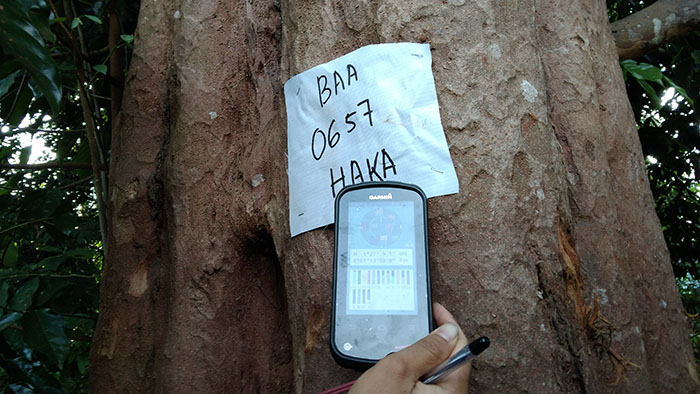 BAA
0657
HAKA
GARMIN